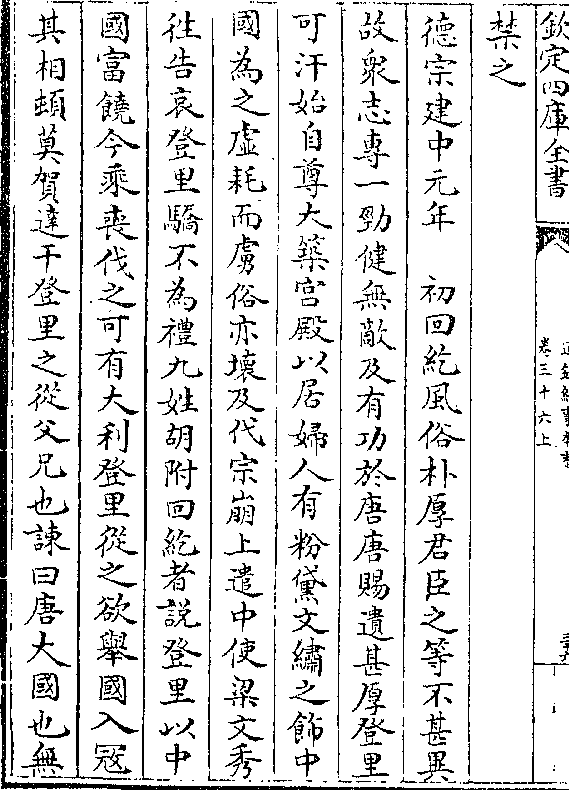 欽定四庫全書
卷三十六上
禁之
德宗建中元年　初回紇風俗朴厚君臣之等不甚異
故衆志專一勁健無敵及有功於唐唐賜遺甚厚登里
可汗始自尊大築宮殿以居婦人有粉黛文繡之飾中
國為之虛耗而虜俗亦壞及代宗崩上遣中使梁文秀
徃告哀登里驕不為禮九姓胡附回紇者説登里以中
國富饒今乘喪伐之可有大利登里從之欲舉國入冦
其相頓莫賀達干登里之從父兄也諫曰唐大國也無